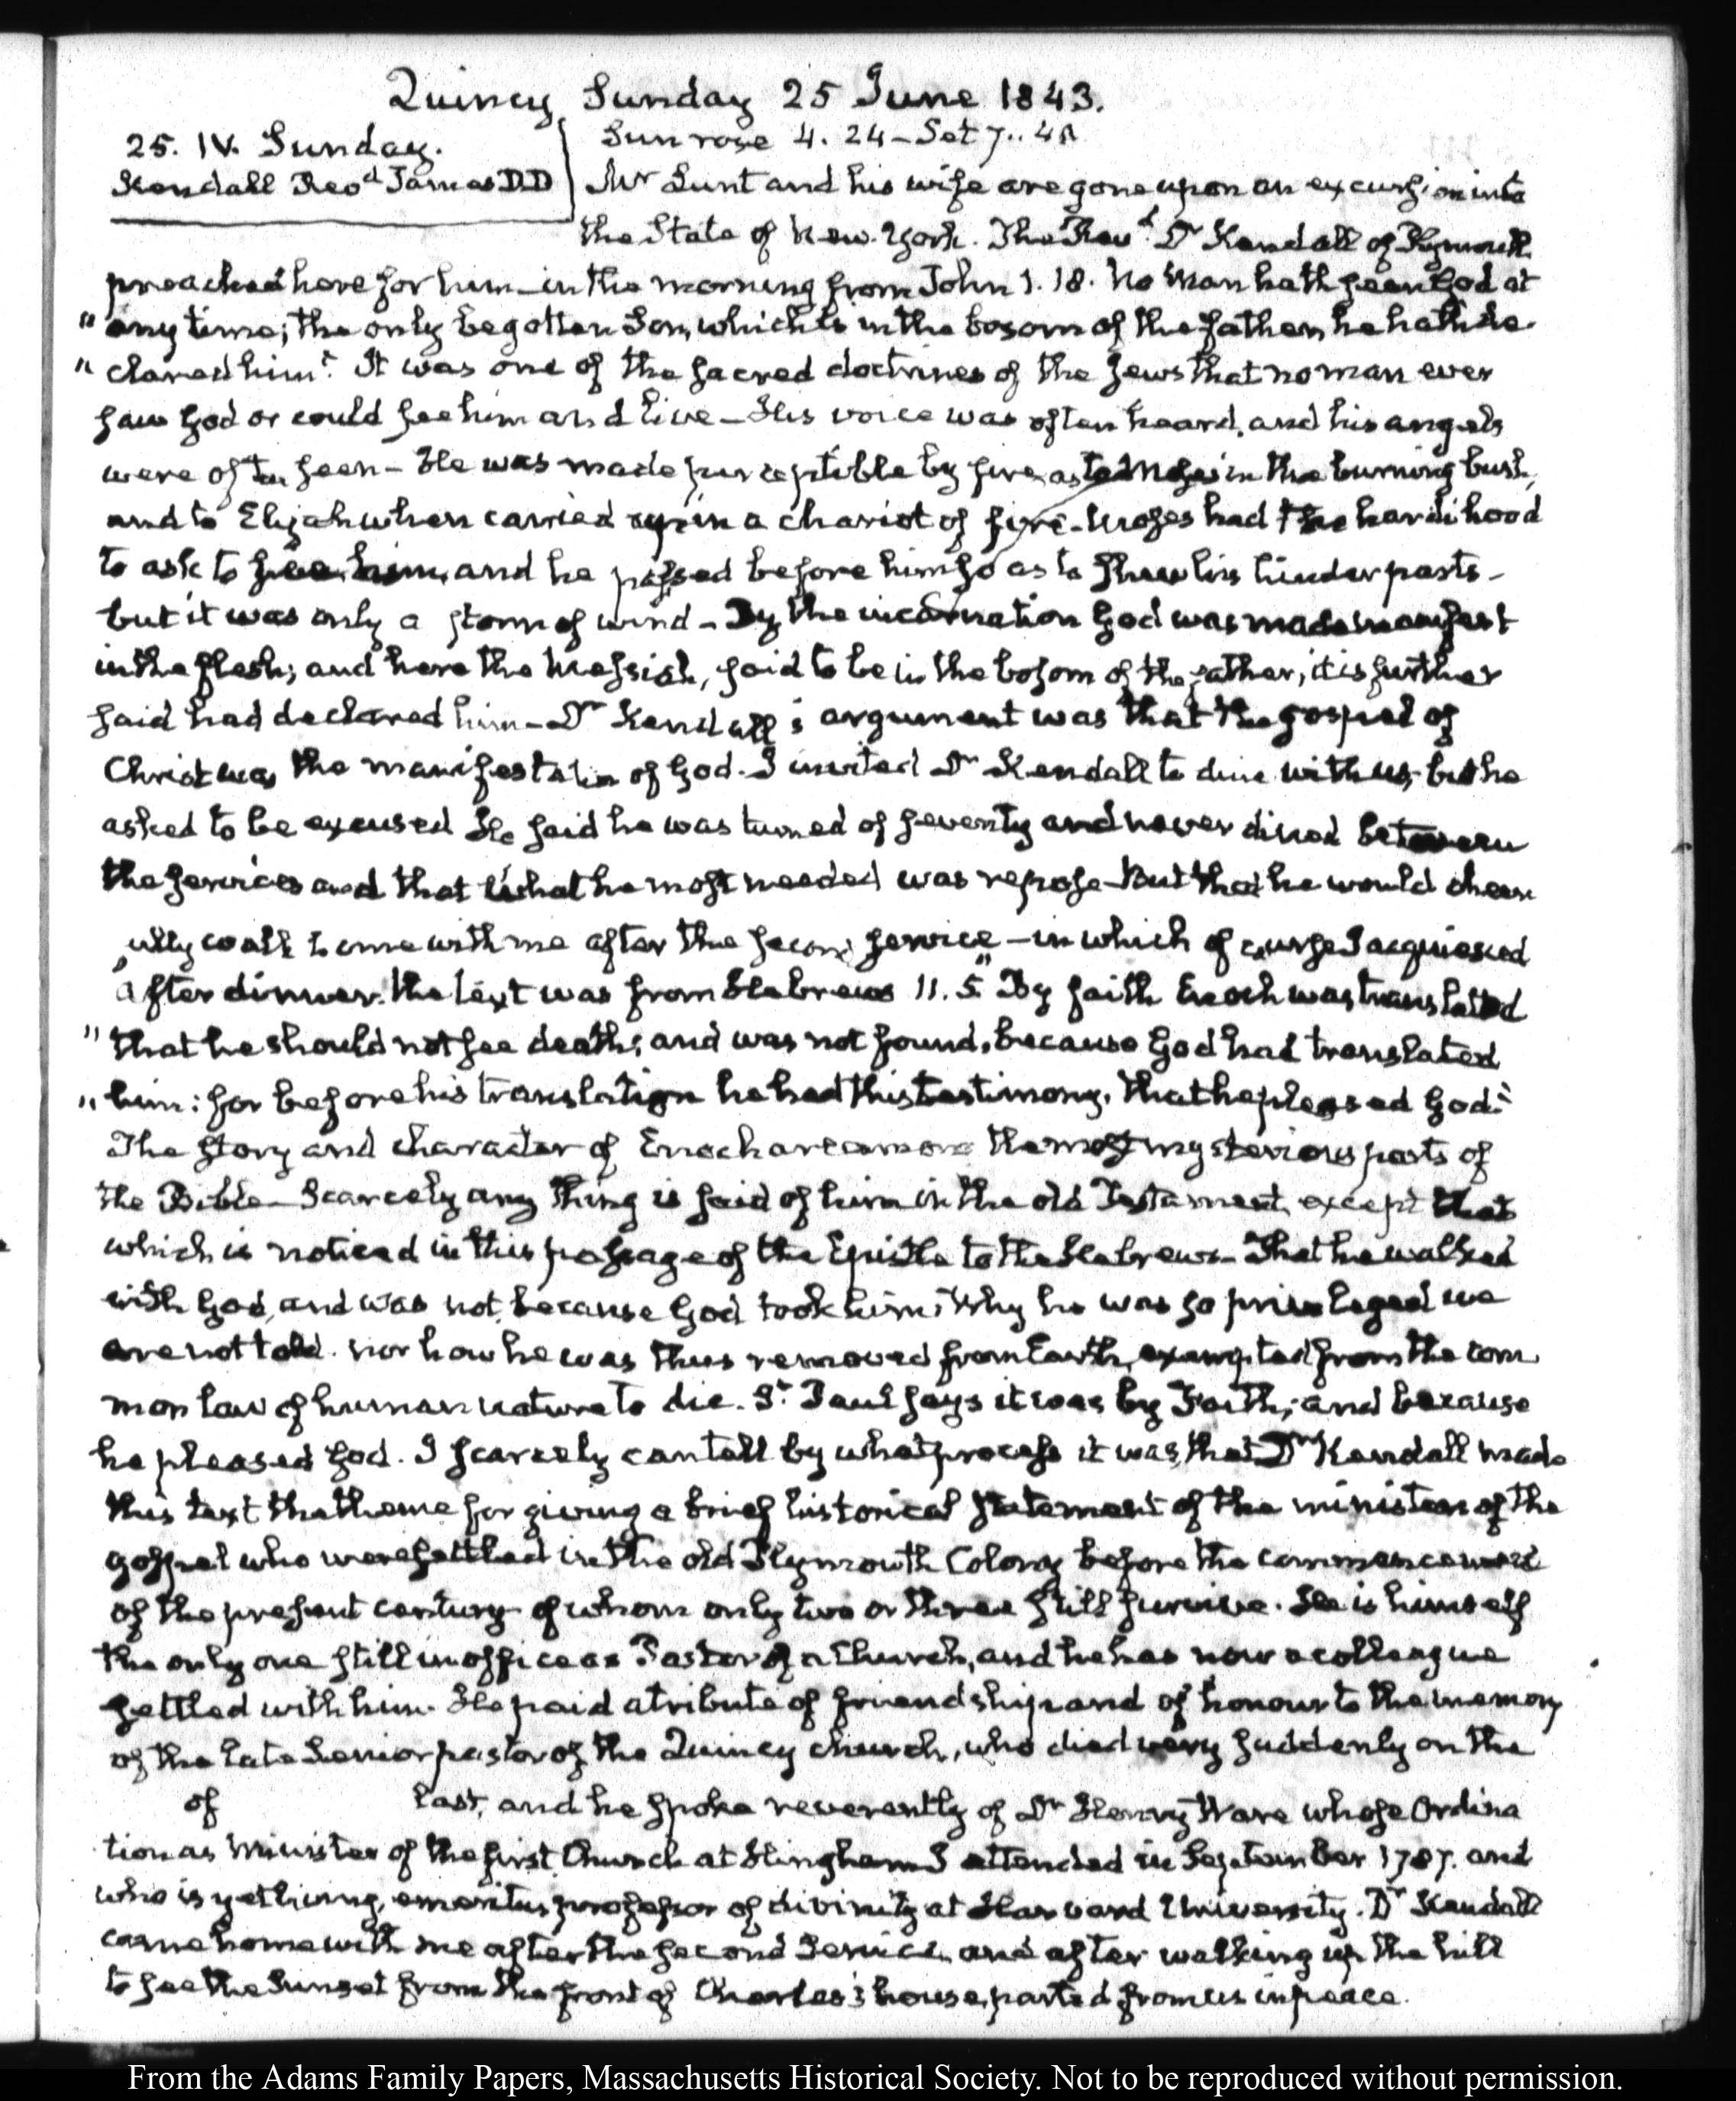 Quincy Sunday 25 June 1843.
25. IV. Sunday.
Kendall Revd James D.D
Sun rose 4. 24 - Set 7..
Mr Lunt and his wife are gone upon an excursion into
the State of New-York. The Revd Dr Kendall of Plymouth
preached here for him - in the morning from John 1. 18. No man hath seen God at
"any time; the only begotten Son, which is in the bosom of the father, he hath de-
"clared him". It was one of the sacred doctrines of the Jews that no man ever
saw God or could see him and live - His voice was often heard, and his angels
were often seen - He was made perceptible by fire, as to Moses in the burning bush,
and to Elijah when carried up in a chariot of fire - Moses had the hardihood
to ask to see him, and he passed before him so as to shew his hinder parts -
but it was only a storm of wind - By the incarnation God was made manifest
in the flesh; and here the Messiah, said to be in the bosom of the father, it is further
said had declared him - Dr Kendall's argument was that the gospel of
Christ was the manifestation of God. I invited Dr Kendall to dine with us, but he
asked to be excused He said he was turned of seventy and never dined between
the services and that what he most needed was repose - But that he would cheer
fully walk home with me after the second service - in which of course I acquiesced
After dinner. the text was from Hebrews 11. 5. "By faith Enoch was translated
"that he should not see death; and was not found, because God had translated
"him: for before his translation he had this testimony, that he pleased God."
The story and character of Enoch are among the most mysterious parts of
the Bible - Scarcely any thing is said of him in the old Testament, except that
which is noticed in this passage of the Epistle to the Hebrews - That he walked
with God, and was not, because God took him; Why he was so privileged we
are not told. nor how he was thus removed from Earth, exempted from the com
mon law of human nature to die. St. Paul says it was by Faith; and because
he pleased God. I scarcely can tell by what process it was, that Dr Kendall made
this text the theme for giving a brief historical statement of the ministers of the
gospel who were settled in the old Plymouth Colony before the commencement
of the present century of whom only two or three still survive. He is himself
the only one still in office as Pastor of a Church, and he has now a colleague
settled with him. He paid a tribute of friendship and of honour to the memory
of the late Senior pastor of the Quincy church, who died very suddenly on the
of last, and he spoke reverently of Dr Henry Ware whose Ordina
tion as Minister of the first Church at Hingham I attended in September 1787. and
who is yet living, emeritus professor of divinity at Harvard University. Dr Kendall
came home with me after the second Service and after walking up the hill
to see the Sunset from the front of Charles's house, parted from us in peace.
From the Adams Family Papers, Massachusetts Historical Society. Not to be reproduced without permission.